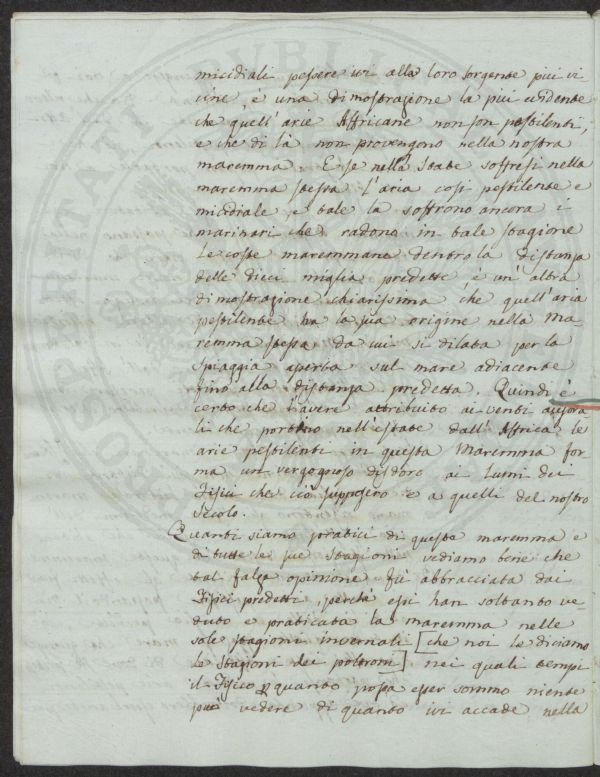 micidiali p essere ivi alla loro sorgente piu vi
cine, è una dimostrazione la piu evidente
che quell'arie Affricane non son pestilenti,
e che di là non provengono nella nostra
maremma. E se nella state soffresi nella
maremma stessa l'aria cosi pestilente e
micidiale, e tale la soffrono ancora i
marinari che radono in tale stagione
le coste maremmane dentro la distanza
delle dieci miglia predette è un'altra
dimostrazione chiarissima che quell'aria
pestilente ha la sua origine nella Ma,
remma stessa da cui si dilata per la
spiaggia aperta sul mare adiacente
fino alla distanza predetta. Quindi è
certo che l'avere attribuito ai venti australi
li che portino nell'estate dall'Affrica le
arie pestilenti in questa Maremma for
ma un vergognoso disdoro ai lumi dei
Fisici che ciò supposero e a quelli del nostro
secolo.
Quanti siamo pratici di questa maremma e
di tutte le sue stagioni vediamo bene che
tal falza opinione fù abbracciata dai
Fisici predetti, perchè essi han soltanto ve,
duto e praticata la maremma nelle
sole stagioni invernali [che noi le diciamo
le stagioni dei poltroni] nei quali tempi
il Fisico p quanto possa esser sommo niente
può vedere di quanto ivi accade nella